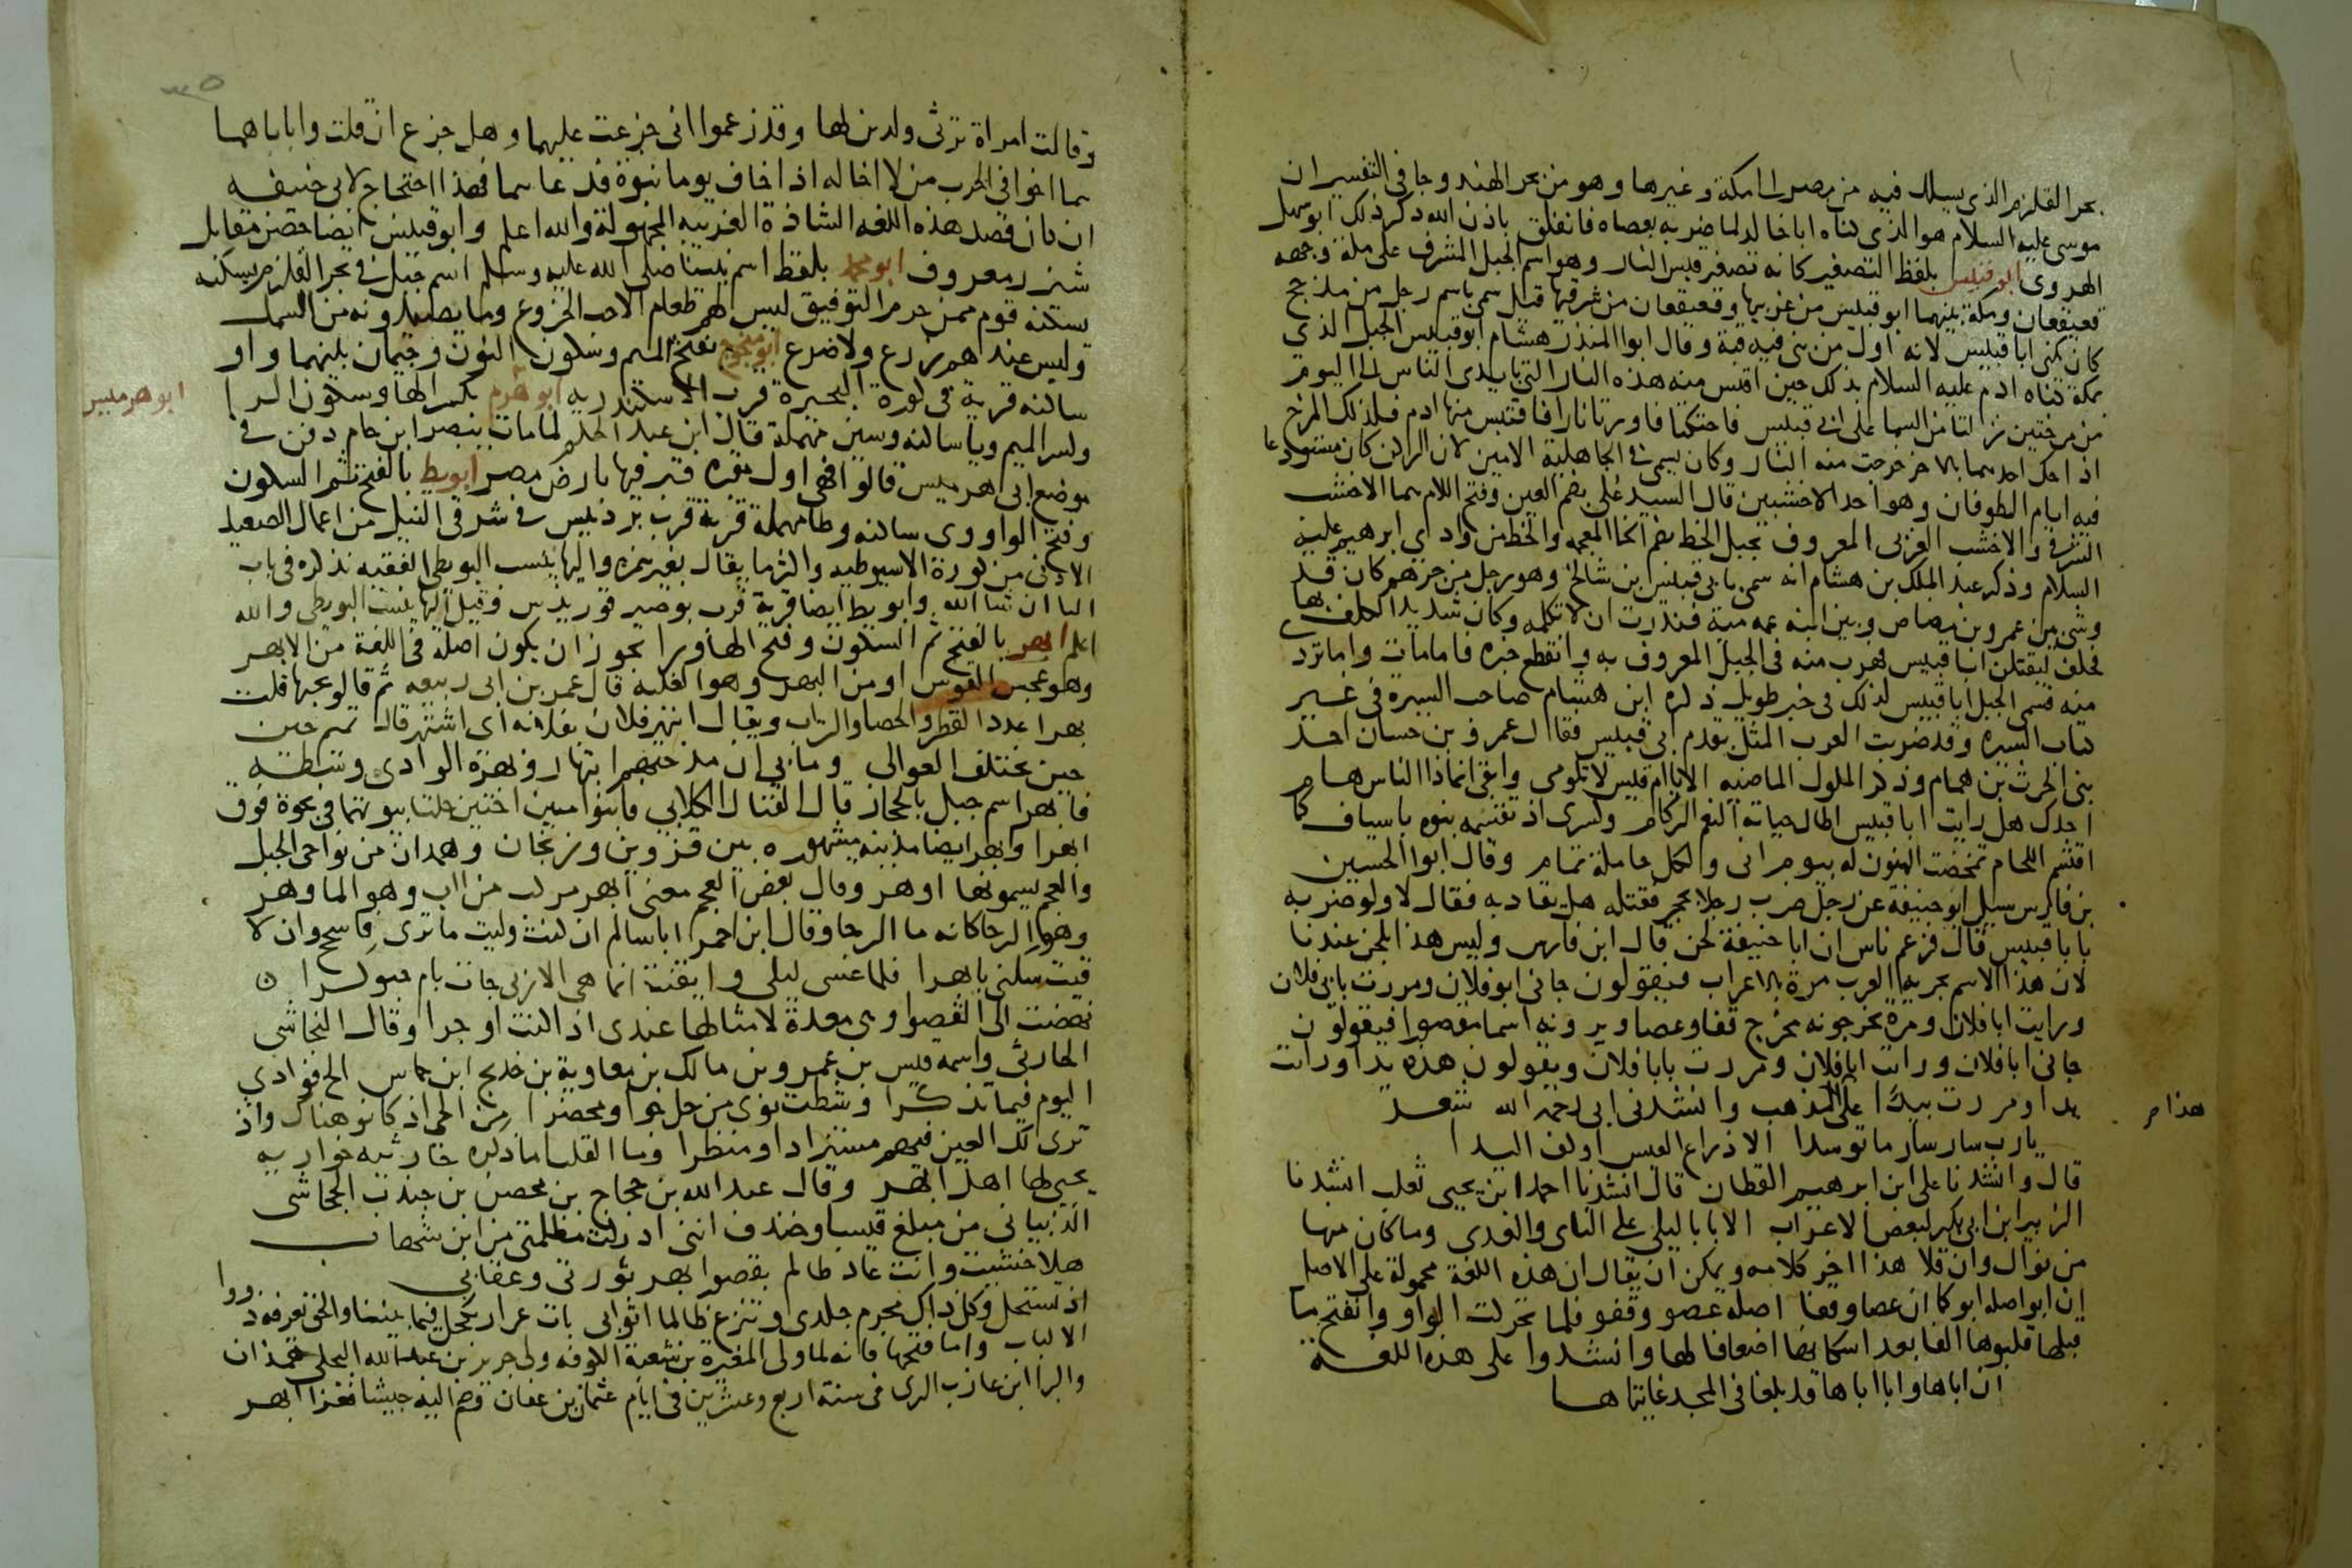 بحر القلزم الذي يسلك فيه من مصر الى مكة وغيرها وهو من بحر الهند وجا في التفسير ان
موسى عليه السلام هو الذي كناه ابا خالد لما ضربه بعصاه فانفلق باذن الله ذكر ذلك ابو سهل
الهروي ابو قبيس بلفظ التصغير كانه تصغير قبس النار وهو اسم الجبل المشرف على مكة وجهه
قعيقعان ومكة بينهما ابو قبيس من غربيها وقعيقعان من شرقيها قيل سمي باسم رجل من مذحج
كان يكنى ابا قبيس لانه اول من بنى فيه قبة وقال ابوا المنذر هشام ابو قبيس الجبل الذي
بمكة كناه ادم عليه السلام بذلك حين اقتبس منه هذه النار التي بايدي الناس الى اليوم
من مرختين نزلتا من السما على ابي قبيس فاحتكتا فاورتا نارا فاقتبس منها ادم فلذلك المرخ
اذا حك احدهما بالاخر خرجت منه النار وكان يسمى في الجاهلية الامين لان الركن كان مستودعا
فيه ايام الطوفان وهو احد الاخشبين قال السيد علي بضم العين وفتح اللام هما الاخشب
الشرقي والاخشب الغربي المعروف بجبل الخط بضم الخا المعجمه والخط من وادي ابرهيم عليه
السلام وذكر عبد الملك بن هشام انه سمي بابي قبيس بن شالخ وهو رجل من جرهم كان قد
وشى بين عمرو بن مضاض وبين ابنه عمه مية فنذرت ان لا تكلمه وكان شديد الكلف بها
فحلف ليقتلن ابا قبيس فهرب منه في الجبل المعروف به وانقطع خبره فاما مات واما تردى
منه فسمي الجبل ابا قبيس لذلك في خبر طويل ذكره ابن هشام صاحب السيرة في غير
كتاب السيره وقد ضربت العرب المثل بقدم ابي قبيس فقال عمرو بن حسان احد
بني الحرث بن همام وذكر الملوك الماضيه الا يا ام قيس لا تلومي وابقي انما ذا الناس هام
اجدك هل رايت ابا قبيس اطال حياته النعم الركام وكسرى اذ تقسمه بنوه باسياف كما
اقتسم اللحام تمخضت المنون له بيوم انى ولكل حاملة تمام وقال ابوا الحسين
بن فارس سيل ابو حنيفة عن رجل ضرب رجلا بحجر فقتله هل يقاد به فقال لا ولو ضربه
بابا قبيس قال فزعم ناس ان ابا حنيفة لحن قال ابن فارس وليس هذا بلحن عندنا
لان هذا الاسم تجريه العرب مرة بالاعراب فيقولون جاني ابو فلان ومررت بابي فلان
ورايت ابا فلان ومرة يخرجونه مخرج قفا وعصا ويرونه اسما مقصورا فيقولون
جاني ابا فلان ورايت ابا فلان ومررت بابا فلان ويقولون هذه يدا ورايت
يدا ومررت بيدا على المذهب وانشدني ابي رحمه الله شعر
هذا م
يا رب سار سار ما توسدا الا ذراع العيس او كف اليدا
قال وانشدنا على ابن ابرهيم القطان قال انشدنا احمد ابن يحيى ثعلب انشدنا
الزبير ابن ابي بكر لبعض الاعراب الا بابا ليلى على الناي والعدى وما كان منها
من نوال وان قلا هذا اخر كلامه ويمكن ان يقال ان هذه اللغة محمولة على الاصل
ان ابو اصله ابو كما ان عصا وقفا اصله عصو وقفو فلما تحركت الواو وانفتح ما
قبلها قلبوها الفا بعد اسكانها اضعافا لها وانشدوا على هذه اللغة
ان اباها وابا اباها قد بلغا في المجد غايتاها
وقالت امراة ترثي ولدين لها وقد زعموا اني جزعت عليهما وهل جزع ان قلت وابابا هما
هما اخوا في الحرب من لا اخا له اذا خاف يوما نبوة فدعاهما فهذا احتجاج لابي حنيفه
ان كان قصد هذه اللغه الشاذة الغريبه المجهولة والله اعلم وابو قبيس ايضا حصن مقابل
شيزر معروف ابو محمد بلفظ اسم نبينا صلى الله عليه وسلم اسم جبل في بحر القلزم يسكنه
يسكنه قوم ممن حرم التوفيق ليس لهم طعام الا حب الخروع وما يصيدونه من السمك
وليس عندهم زرع ولا ضرع ابو منجوج بفتح الميم وسكون النون وجيمان بينهما واو
ساكنه قرية في كورة البحيرة قرب الاسكندريه ابو هرم بكسر الها وسكون الرا
ابو هرميس
وكسر الميم ويا ساكنه وسين مهملة قال ابن عبد الحكم لما مات بيصر ابن حام دفن في
موضع ابي هرميس قالوا فهي اول مقبره قبر فيها بارض مصر ابويط بالفتح ثم السكون
وفتح الواو وى ساكنه وطا مهملة قرية قرب بردنيس في شرقي النيل من اعمال الصعيد
الادنى من كورة الاسيوطيه واكثر ما يقال بغير همزه واليها ينسب البويطي الفقيه نذكره في باب
البا ان شا الله وابويط ايضا قرية قرب بوصير قوريدس وقيل اليها ينسب البويطي والله
اعلم ابهر بالفتح ثم السكون وفتح الها ورا يجوز ان يكون اصله في اللغة من الابهر
وهو عجس القوس او من البهر وهو الغلبه قال عمر بن ابي ربيعه ثم قالو تحبها قلت
بهرا عدد القطر والحصا والتراب ويقال ابتهر فلان بفلانه اي اشتهر قال تميم حين
حين تختلف العوالي وما بي ان مدحتهم ابتهار وبهرة الوادي وسطه
فابهر اسم جبل بالحجاز قال القتال الكلابي فانا بنو امين اختين حلتا بيوتهما في نجوة فوق
ابهرا وابهر ايضا مدينه مشهوره بين قزوين وزنجان وهمدان من نواحي الجبل
والعجم يسمونها اوهر وقال بعض العجم معنى ابهر مركب من اب وهو الما وهر
وهو الرحا كانه ما الرحا وقال ابن احمر ابا سالم ان كنت وليت ما ترى فاسجح وان لا
قيت سكنى بابهرا فلما غسى ليلى وايقنت انها هي الاربى جات بام حبوكرا
نهضت الى القصوا وهي معدة لامثالها عندي اذا كنت اوجرا وقال النجاشي
الحارثي واسمه قيس بن عمرو بن مالك بن معاوية بن خديج ابن حماس الح فوادي
اليوم فيما تذكرا وشطت نوى من حل جوا ومحضرا من الحي اذ كانو هناك واذ
ترى لك العين فيهم مسترادا ومنظرا وما القلب الا ذكره حارثيه خواريه
يحيى لها اهل ابهر وقال عبد الله بن حجاج بن محصن بن جندب الجحاشي
الذبياني من مبلغ قيسا وخندف انني ادركت مظلمتي من ابن شهاب
هلا خشيت وانت عاد ظالم بقصوا ابهر ثورتي وعقابي
اذ تستحل وكل ذاك محرم جلدي وتنزع ظالما اثوابي بات عرار بكحل فيما بيننا والحق يعرفه ذووا
الالباب واما فتحها فانه لما ولى المغيرة بن شعبة الكوفه ولى جرير بن عبد الله البجلي همذان
والبرا ابن عازب الري في سنة اربع وعشرين في ايام عثمان بن عفان وضم اليه جيشا فغزا ابهر